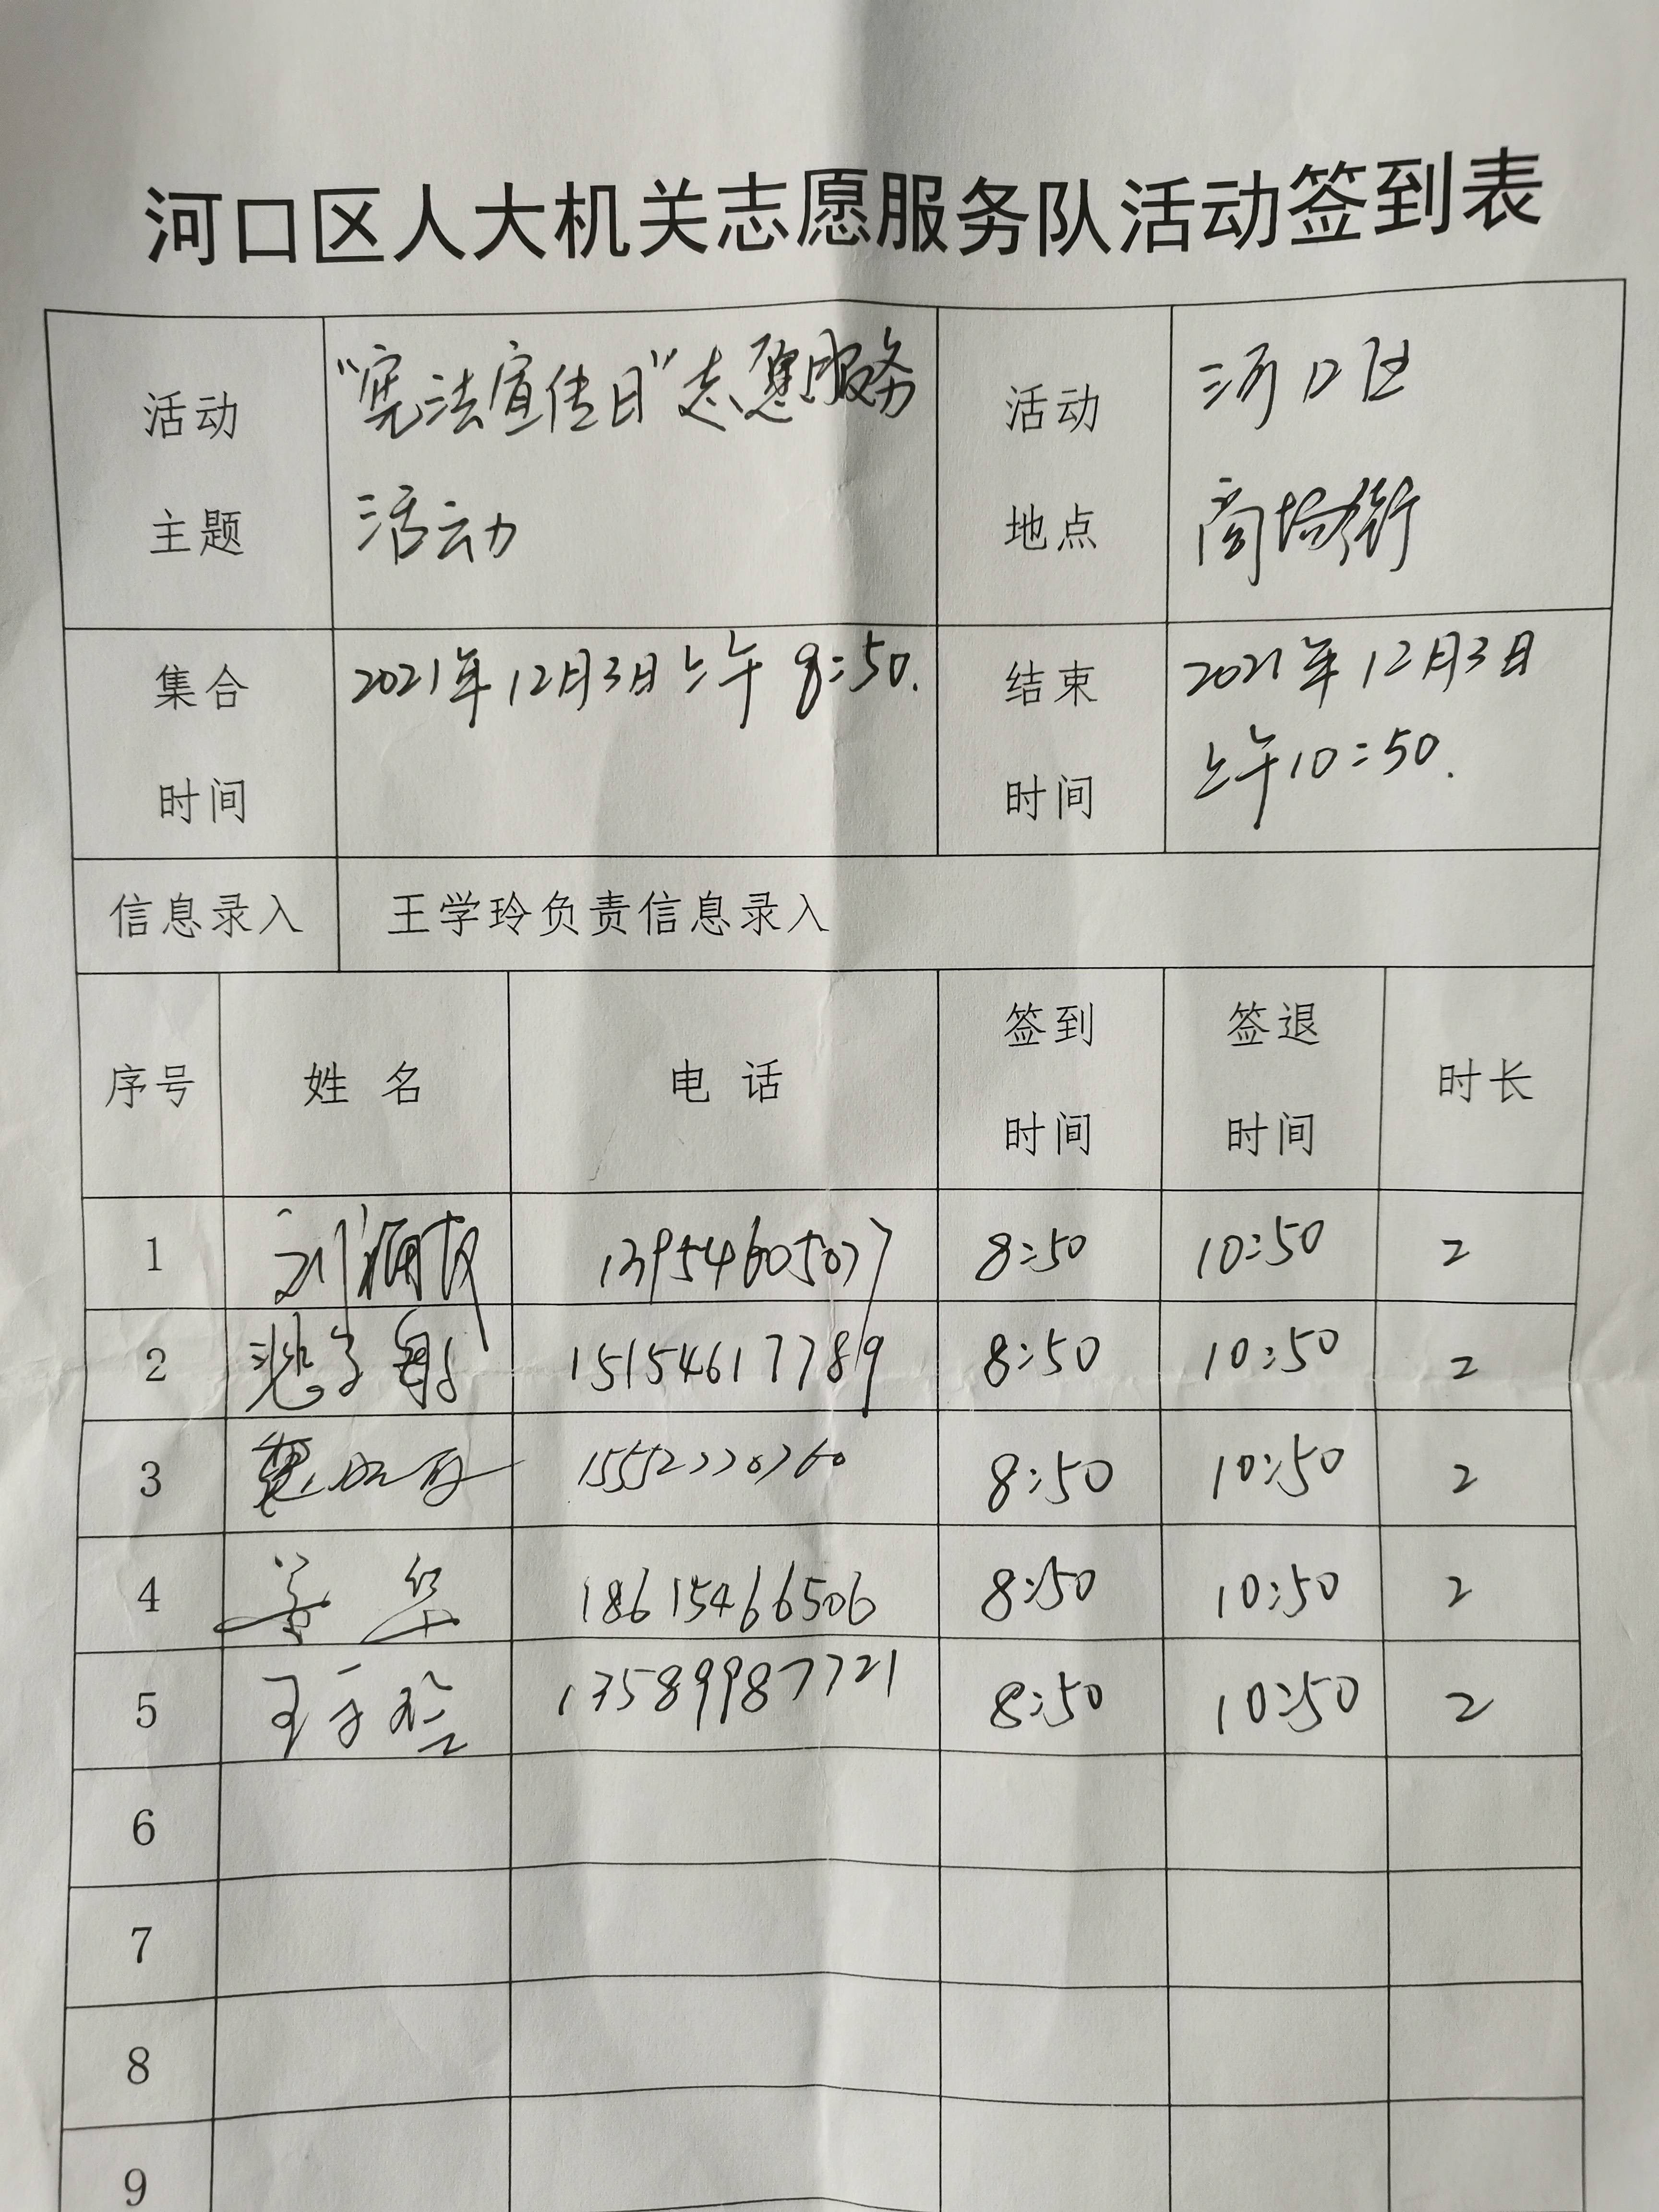 河口区人大机关志愿服务队活动签到表
活动主题 "宪法宣传日"志愿服务活动 活动地点 河口区商场街
集合时间 2021年12月3日上午8:50. 结束时间 2021年12月3日上午10:50.
信息录入 王学玲负责信息录入
序号 姓名 电话 签到时间 签退时间 时长
1 13954605077 8:50 10:50 2
2 15154617789 8:50 10:50 2
3 8:50 10:50 2
4 18615466506 8:50 10:50 2
5 王学玲 13589987721 8:50 10:50 2
6
7
8
9